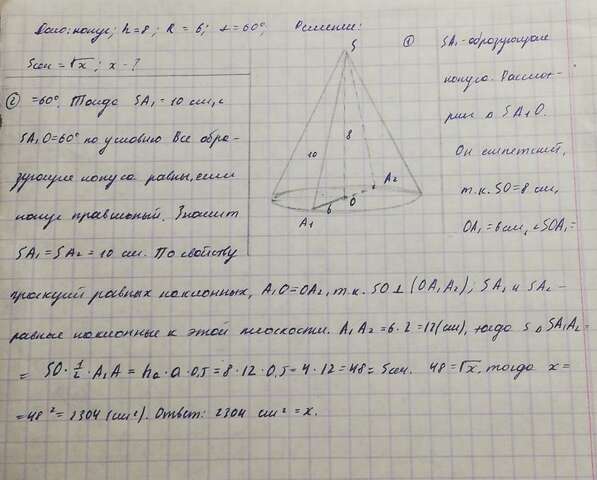 Дано: конус; h=8; R = 6; ∠=60°;
Sсеч = √x; x - ?
Решение:
① SA₁-образующая
конуса. Рассмот-
рим △ SA₁O.
Он египетский,
т.к. SO=8 см,
OA₁=6см, ∠SOA₁=
② =60°. Тогда SA₁=10 см, ∠
SA₁O=60° по условию. Все обра-
зующие конуса равны, если
конус правильный. Значит
SA₁=SA₂=10 см. По свойству
проекций равных наклонных, A₁O=OA₂, т.к. SO⊥(OA₁A₂); SA₁ и SA₂ -
равные наклонные к этой плоскости. A₁A₂=6·2=12(см), тогда S△SA₁A₂=
= SO·½·A₁A = hₐ·a·0,5=8·12·0,5=4·12=48= Sсеч. 48=√x, тогда x=
=48²=2304(см²). Ответ: 2304 см²=x.
S
8
10
6
O
A₁
A₂